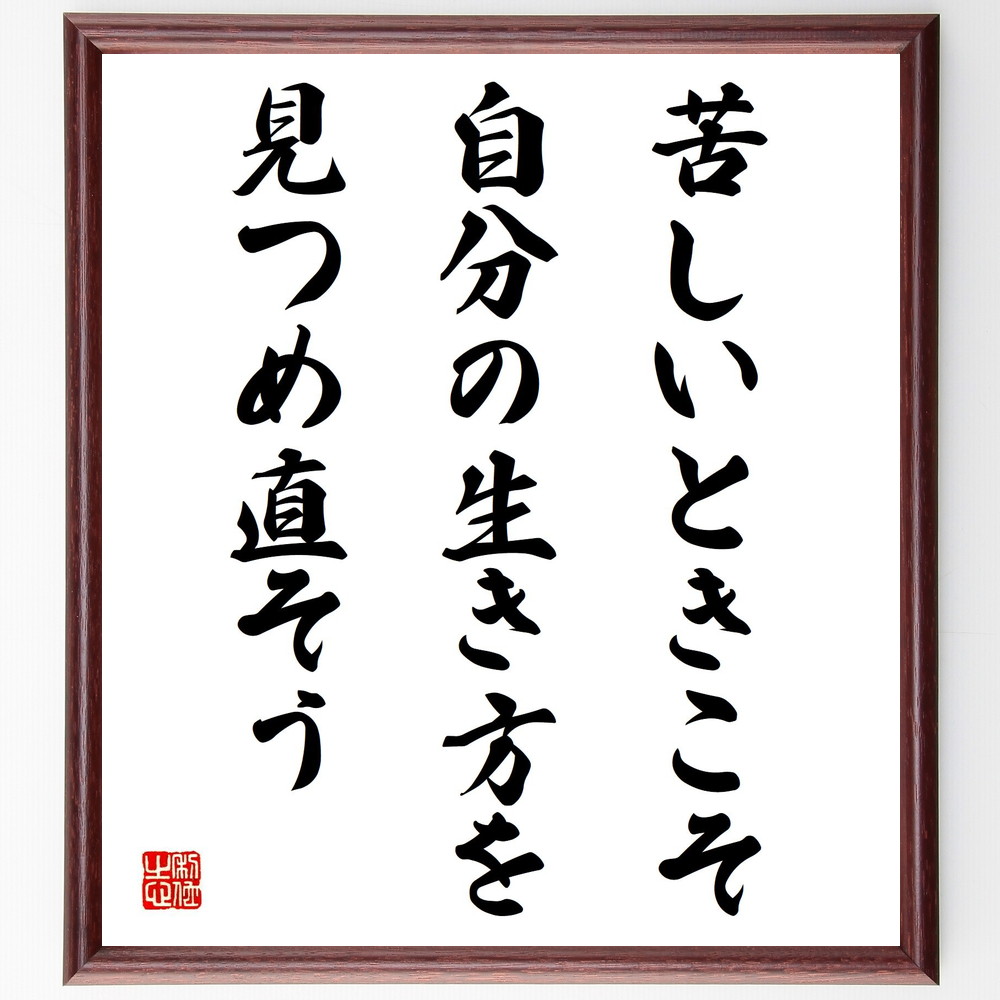 苦しいときこそ
自分の生き方を
見つめ直そう